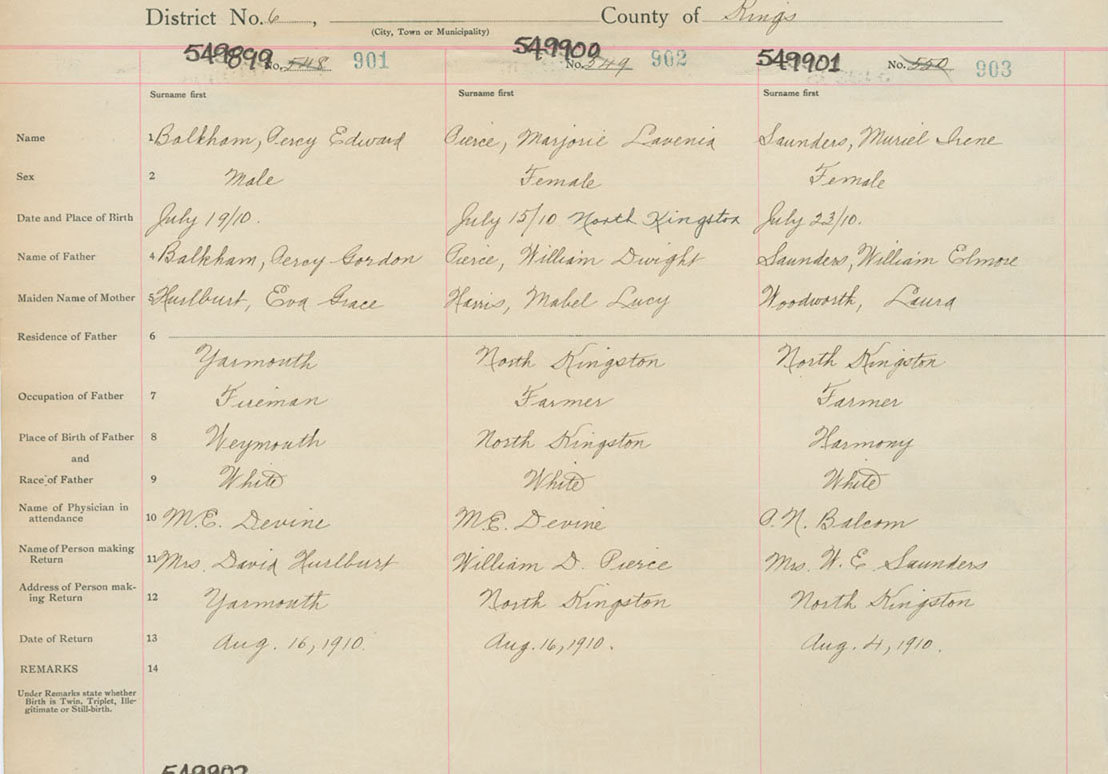 District No. 6, County of Kings
(City, Town or Municipality)
549899 No. 548 901 549900 No. 549 902 549901 No. 550 903
Surname first Surname first Surname first
Name 1 Balkham, Percy Edward Pierce, Marjorie Lavenia Saunders, Muriel Irene
Sex 2 Male Female Female
Date and Place of Birth July 19/10. July 15/10 North Kingston July 23/10.
Name of Father 4 Balkham, Percy Gordon Pierce, William Dwight Saunders, William Elmore
Maiden Name of Mother 5 Hurlburt, Eva Grace Harris, Mabel Lucy Woodworth, Laura
Residence of Father 6
Yarmouth North Kingston North Kingston
Occupation of Father 7 Fireman Farmer Farmer
Place of Birth of Father 8 Weymouth North Kingston Harmony
and
Race of Father 9 White White White
Name of Physician in
attendance 10 M.E. Devine M.E. Devine P.N. Balcom
Name of Person making
Return 11 Mrs. David Hurlburt William D. Pierce Mrs. W. E. Saunders
Address of Person mak-
ing Return 12 Yarmouth North Kingston North Kingston
Date of Return 13 Aug. 16, 1910. Aug. 16, 1910. Aug. 4, 1910.
REMARKS 14
Under Remarks state whether
Birth is Twin, Triplet, Ille-
gitimate or Still-birth.
549902